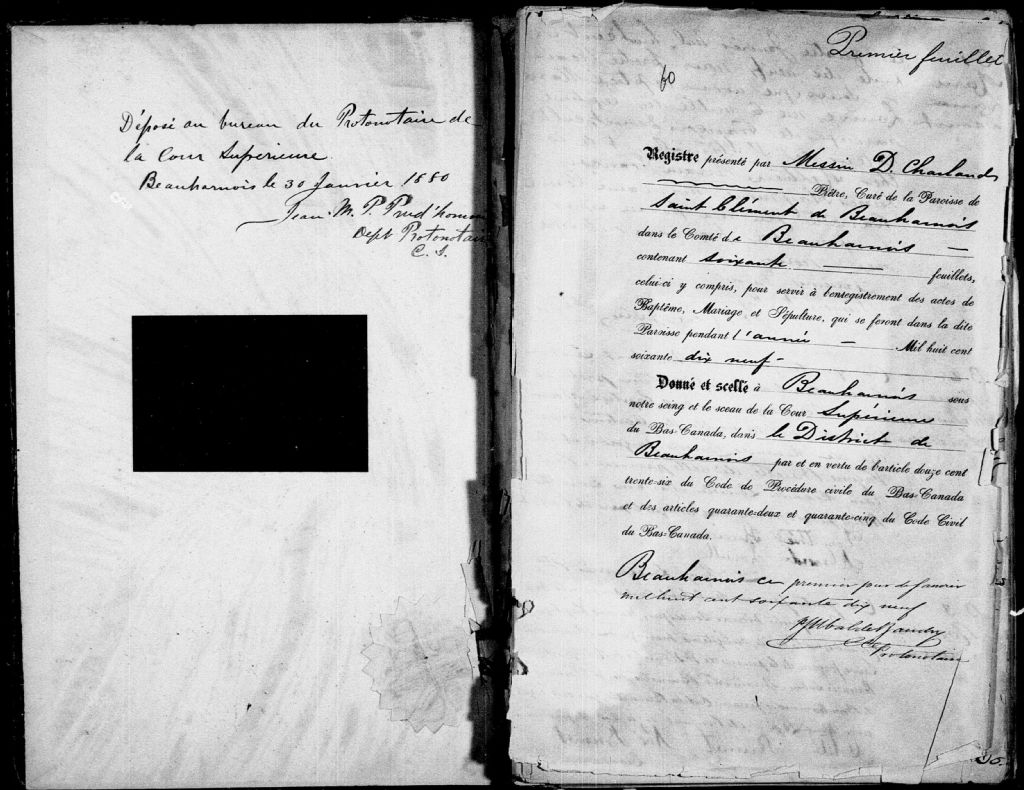 Déposé au bureau du Protonotaire de
la Cour Supérieure.
Beauharnois le 30 Janvier 1880
Jean-M. P. Prud'homme
Dept Protonotaire
C. S.
Premier feuillet
60
Registre présenté par Messire D. Charland
Prêtre, Curé de la Paroisse de
Saint Clément de Beauharnois
dans le Comté de Beauharnois —
contenant soixante — feuillets,
celui-ci y compris, pour servir à l'enregistrement des actes de
Baptême, Mariage et Sépulture, qui se feront dans la dite
Paroisse pendant l'année — Mil huit cent
soixante dix neuf -
Donné et scellé à Beauharnois sous
notre seing et le sceau de la Cour Supérieure
du Bas-Canada, dans le District de
Beauharnois par et en vertu de l'article douze cent
trente-six du Code de Procédure civile du Bas-Canada
et des articles quarante-deux et quarante-cinq du Code Civil
du Bas-Canada.
Beauharnois ce premier jour de Janvier
mil huit cent soixante dix neuf
Protonotaire